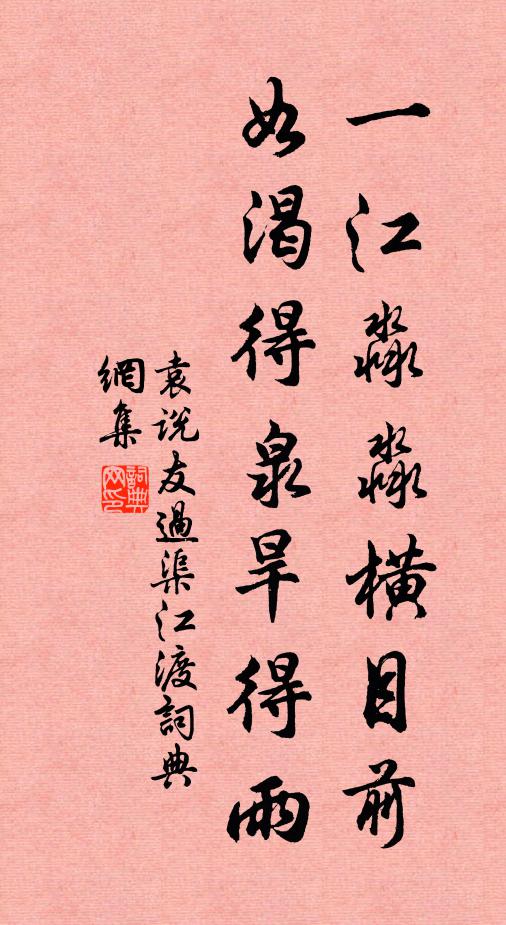 一江淼淼橫目前
如渴得泉旱得雨
袁說友過渠江渡詞典
網集
詞典網印